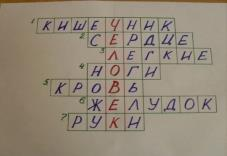 1 КИШЕЧНИК
2 СЕРДЦЕ
3 ЛЕГКИЕ
4 НОГИ
5 КРОВЬ
6 ЖЕЛУДОК
7 РУКИ